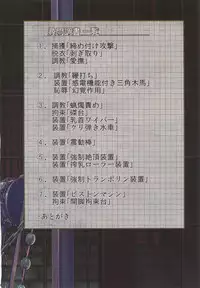 1. 捕獲「締め付け攻撃」
脱衣「剥ぎ取り」
調教「愛撫」
2. 調教「鞭打ち」
装置「感電機能付き三角木馬」
恥辱「幻覚作用」
3. 調教「蝋燭責め」
拘束「磔台」
装置「乳首ワイパー」
装置「ツリ弾き水車」
4. 装置「震動棒」
5. 装置「強制絶頂装置」
装置「搾乳ローラー装置」
6. 装置「強制トランポリン装置」
7. 装置「ピストンマシン」
拘束「開脚拘束台」
あとがき